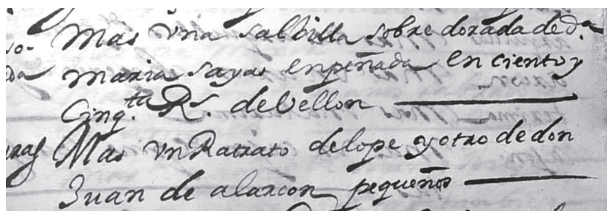 Mas Una salbilla sobre dorada de d.ª
maria sayas enpeñada en ciento y
cinq.ta Rs de Vellon
Mas Un Ratrato de lope y otro de don
Juan de alarcon pequeños